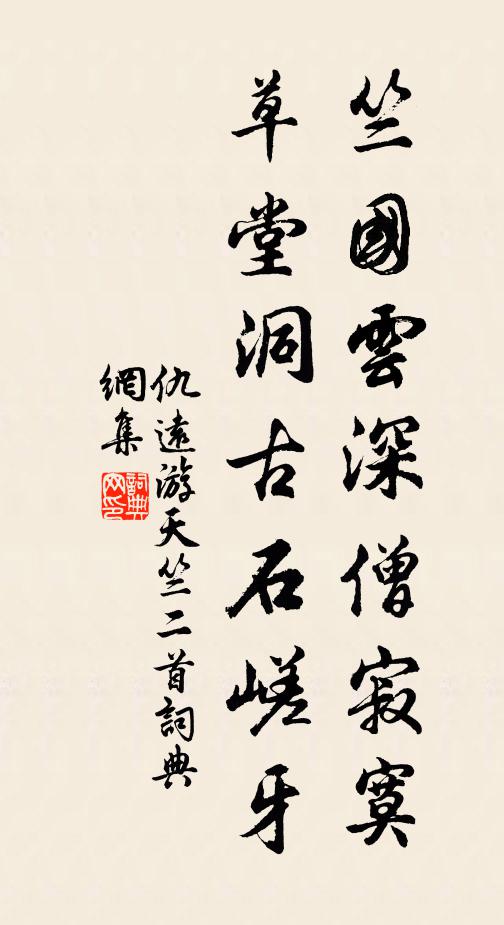 竺國雲深僧寂寞
草堂洞古石嵯牙
仇遠游天竺二首詞典
網集
詞典
网印